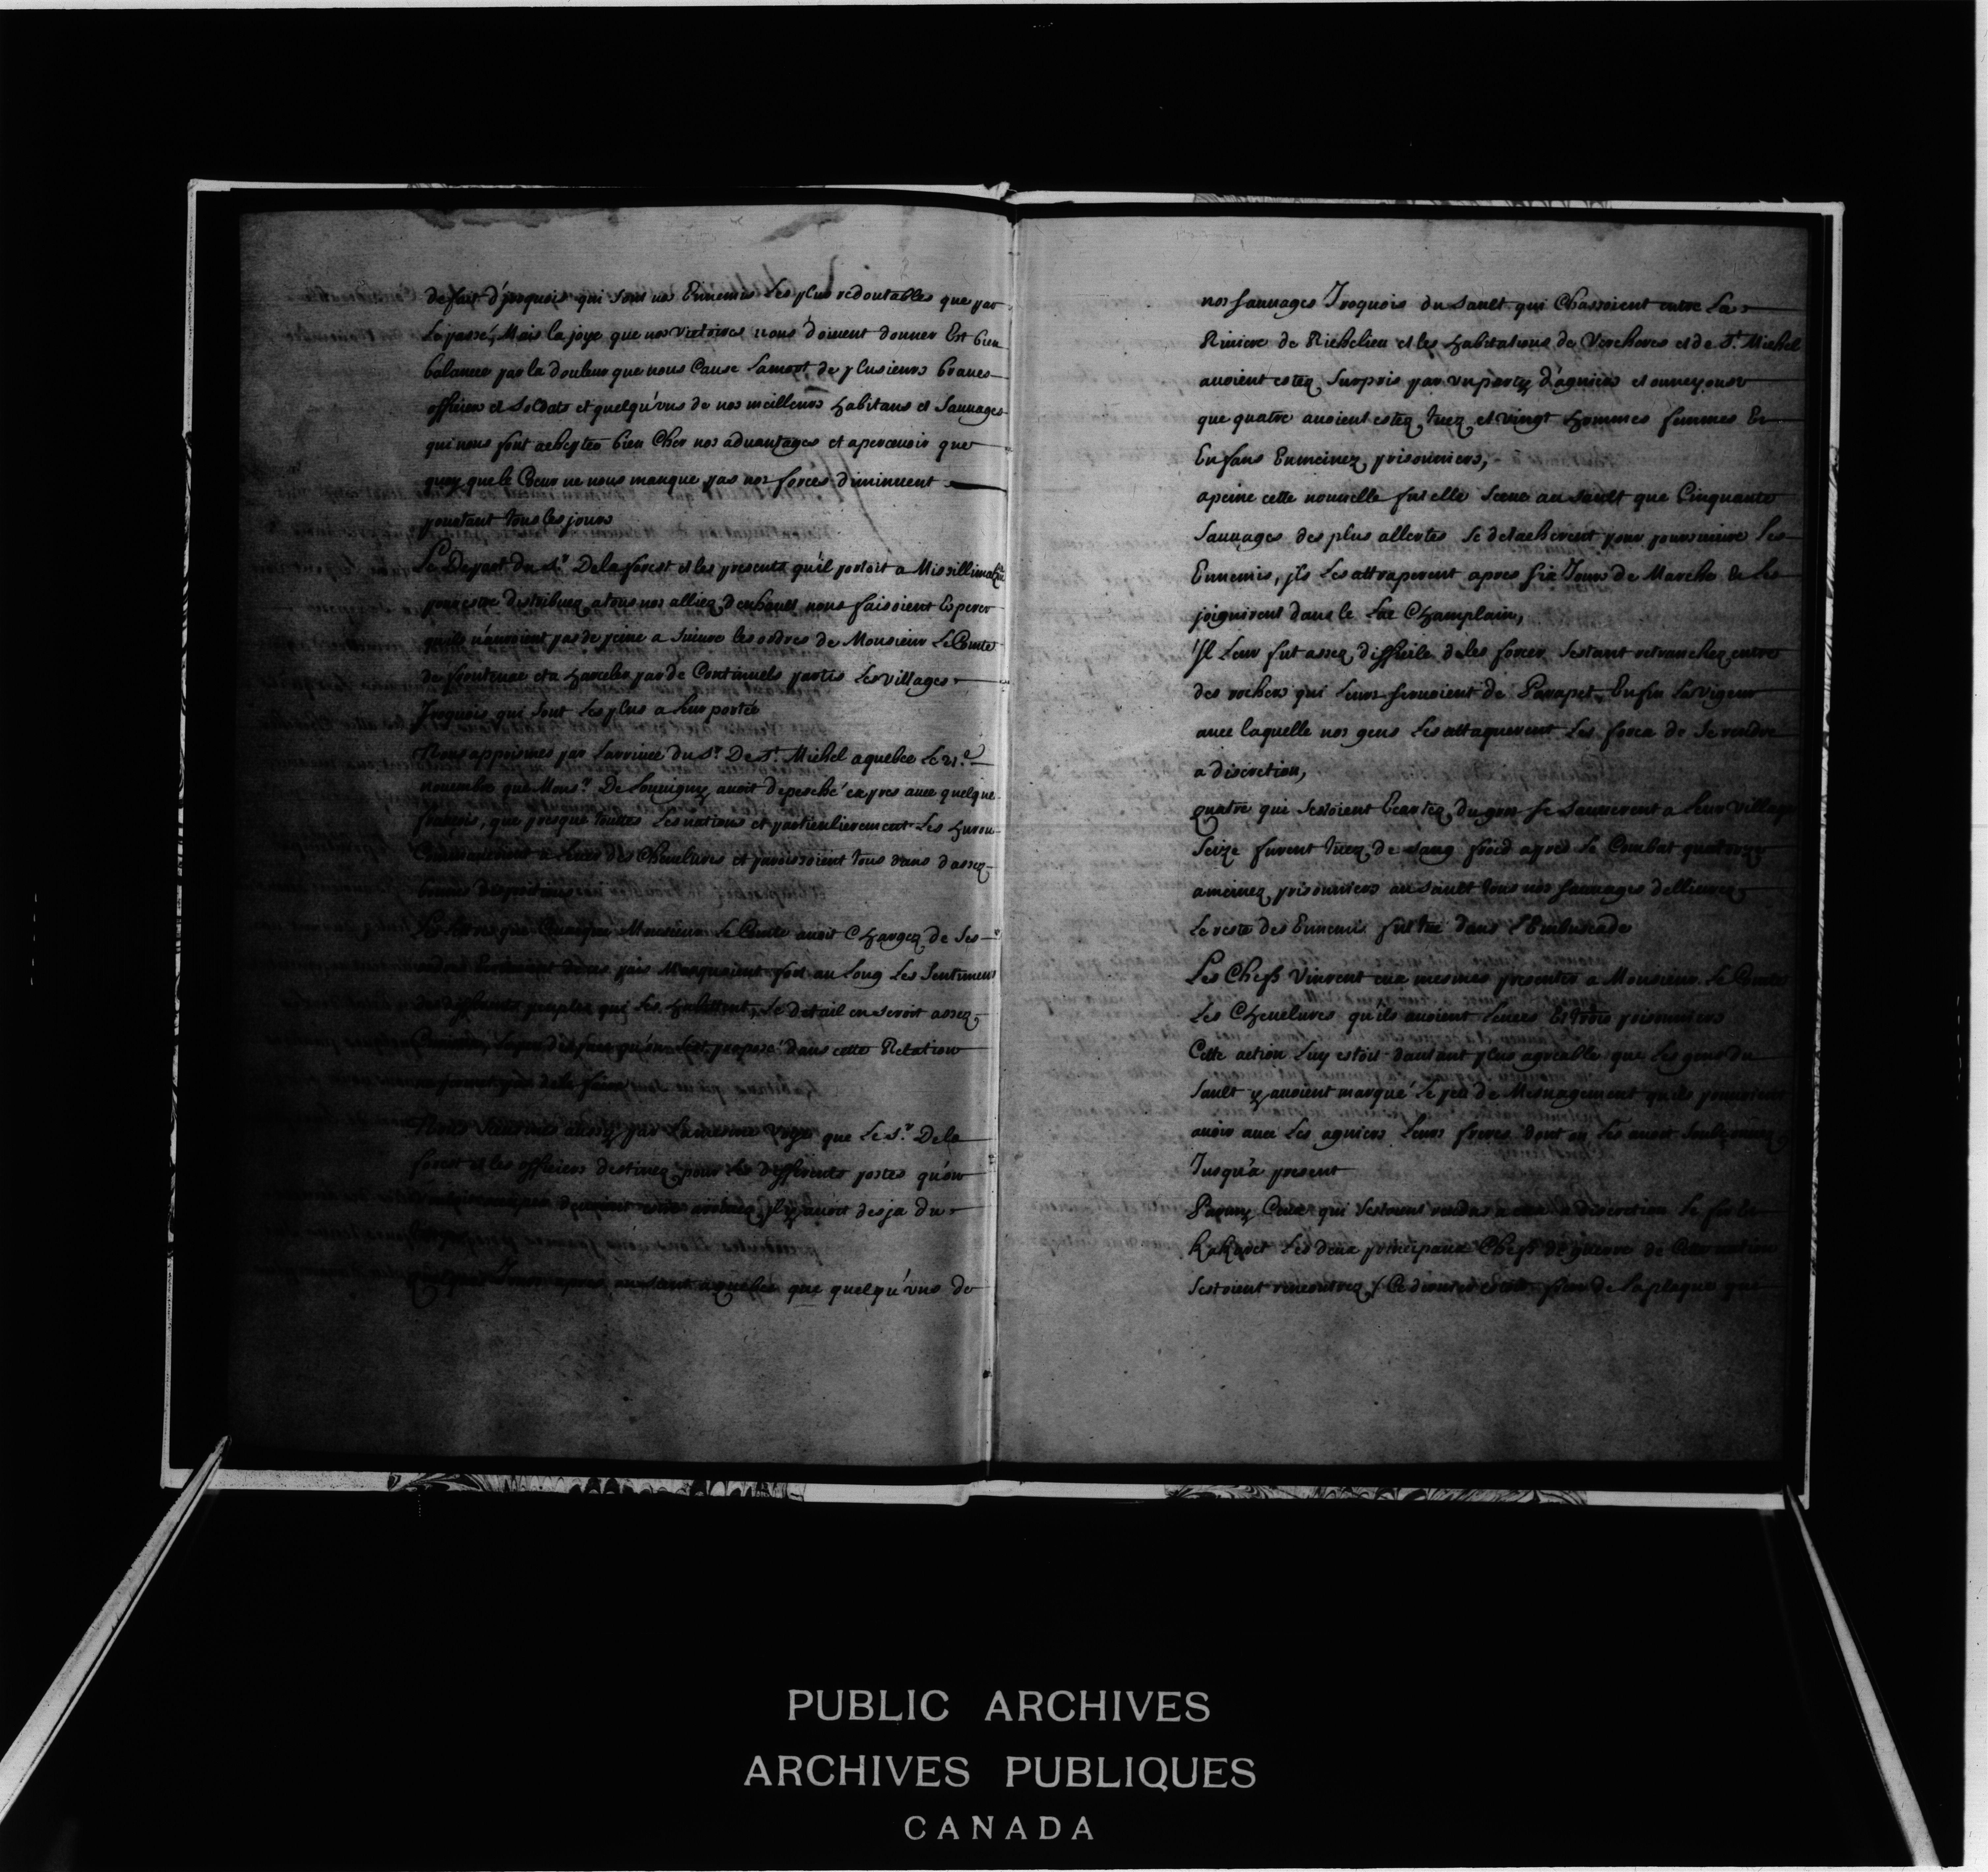 defait d'jroquois qui sont nos Ennemis Les plus redoutables que par
Le passé, Mais la joye que nos victoires nous doiuent donner Est bien
balancee par la douleur que nous Cause Lamort de plusieurs braues
officiers et Soldats et quelqu'vns de nos meilleurs habitans et Sauuages
qui nous font achepter bien Cher nos aduantages et aperceuoir que
quoy que le Coeur ne nous manque pas nos forces diminuent
pourtant tous les jours
Le Depart du Sr. Dela forest et les presents qu'il portoit a Missillimak
pour estre distribuez atous nos alliez denhault nous faisoient Esperer
quils n'auroient pas de peine a suiure les ordres de Monsieur Le Comte
de frontenac et a harceler par de Continuels partis Les villages
Jroquois qui sont Les plus a Leur portée
Nous apprismes par Larriuée du Sr. De St. Michel aquebec Le 21.e
nouembre que Mons.r De Louuigny auoit depesché expres auec quelque
francois, que presque toutes Les nations et particulierement Les huron
Commancoient a Leuer des Cheuelures et paroissoient tous dans d'assez
bonnes dispositions
Les Lettres que Monsieur Le Comte auoit Chargez de Ses
ordres pais Marquoient fort au Long Les Sentimens
des differents peuples qui Les habittent, Le detail en seroit assez
qu'on s'est proposé dans cette Relation
ne permet pas de le faire
Nous sceumes aussy par Lamesme voye que Le Sr. Dela
forest et les officiers destinez pour Les differents postes qu'on
deuoient estre arriuez, Il y auoit desja du
temps
quelques Jours apres on sceut aquebec que quelqu'vns de
nos Sauuages Jroquois du Sault qui Chassoient entre La
Riuiere de Richelieu et les habitations de Vercheres et de St. Michel
auoient estez Surpris par vn party d'agniers et onneyoust
que quatre auoient estez tuez et vingt hommes femmes Et
Enfans Enmeinez prisonniers,
apeine cette nouuelle fut elle Sceue au Sault que Cinquante
Sauuages des plus allertes Se detacherent pour poursuiure Les
Ennemis, jls Les attraperent apres six Jours de Marche & les
joignirent dans le Lac Champlain,
Jl Leur fut assez difficile de les forcer Sestant retranchez entre
des rochers qui Leurs seruoient de Parapet Enfin La vigeur
auec laquelle nos gens Les attaquerent Les força de Se rendre
a discretion,
quatre qui Sestoient Ecartez du gros se Sauuerent a Leur village
Seize furent tuez de sang froid apres Le Combat quatorze
ameinez prisonniers au Sault tous nos Sauuages delliurez
Le reste des Ennemis fut tué dans L'Embuscade
Les Chefs vinrent eux mesmes presenter a Monsieur Le Comte
Les Cheuelures qu'ils auoient Leuees Et trois prisonniers
Cette action Luy estoit dautant plus agreable que Les gens du
Sault y auoient marqué Le peu de Mesnagement quils pouuoient
auoir auec Les agniers Leurs freres dont on Les auoit Soubçonnez
Jusqu'a present
Parmy Ceux qui Sestoient rendus a eux a discretion Le fils
Les deux principaux Chefs de guerre de Cette nation
Sestoient rencontrez Ce dernier estoit frere de La plaque que
PUBLIC ARCHIVES
ARCHIVES PUBLIQUES
CANADA